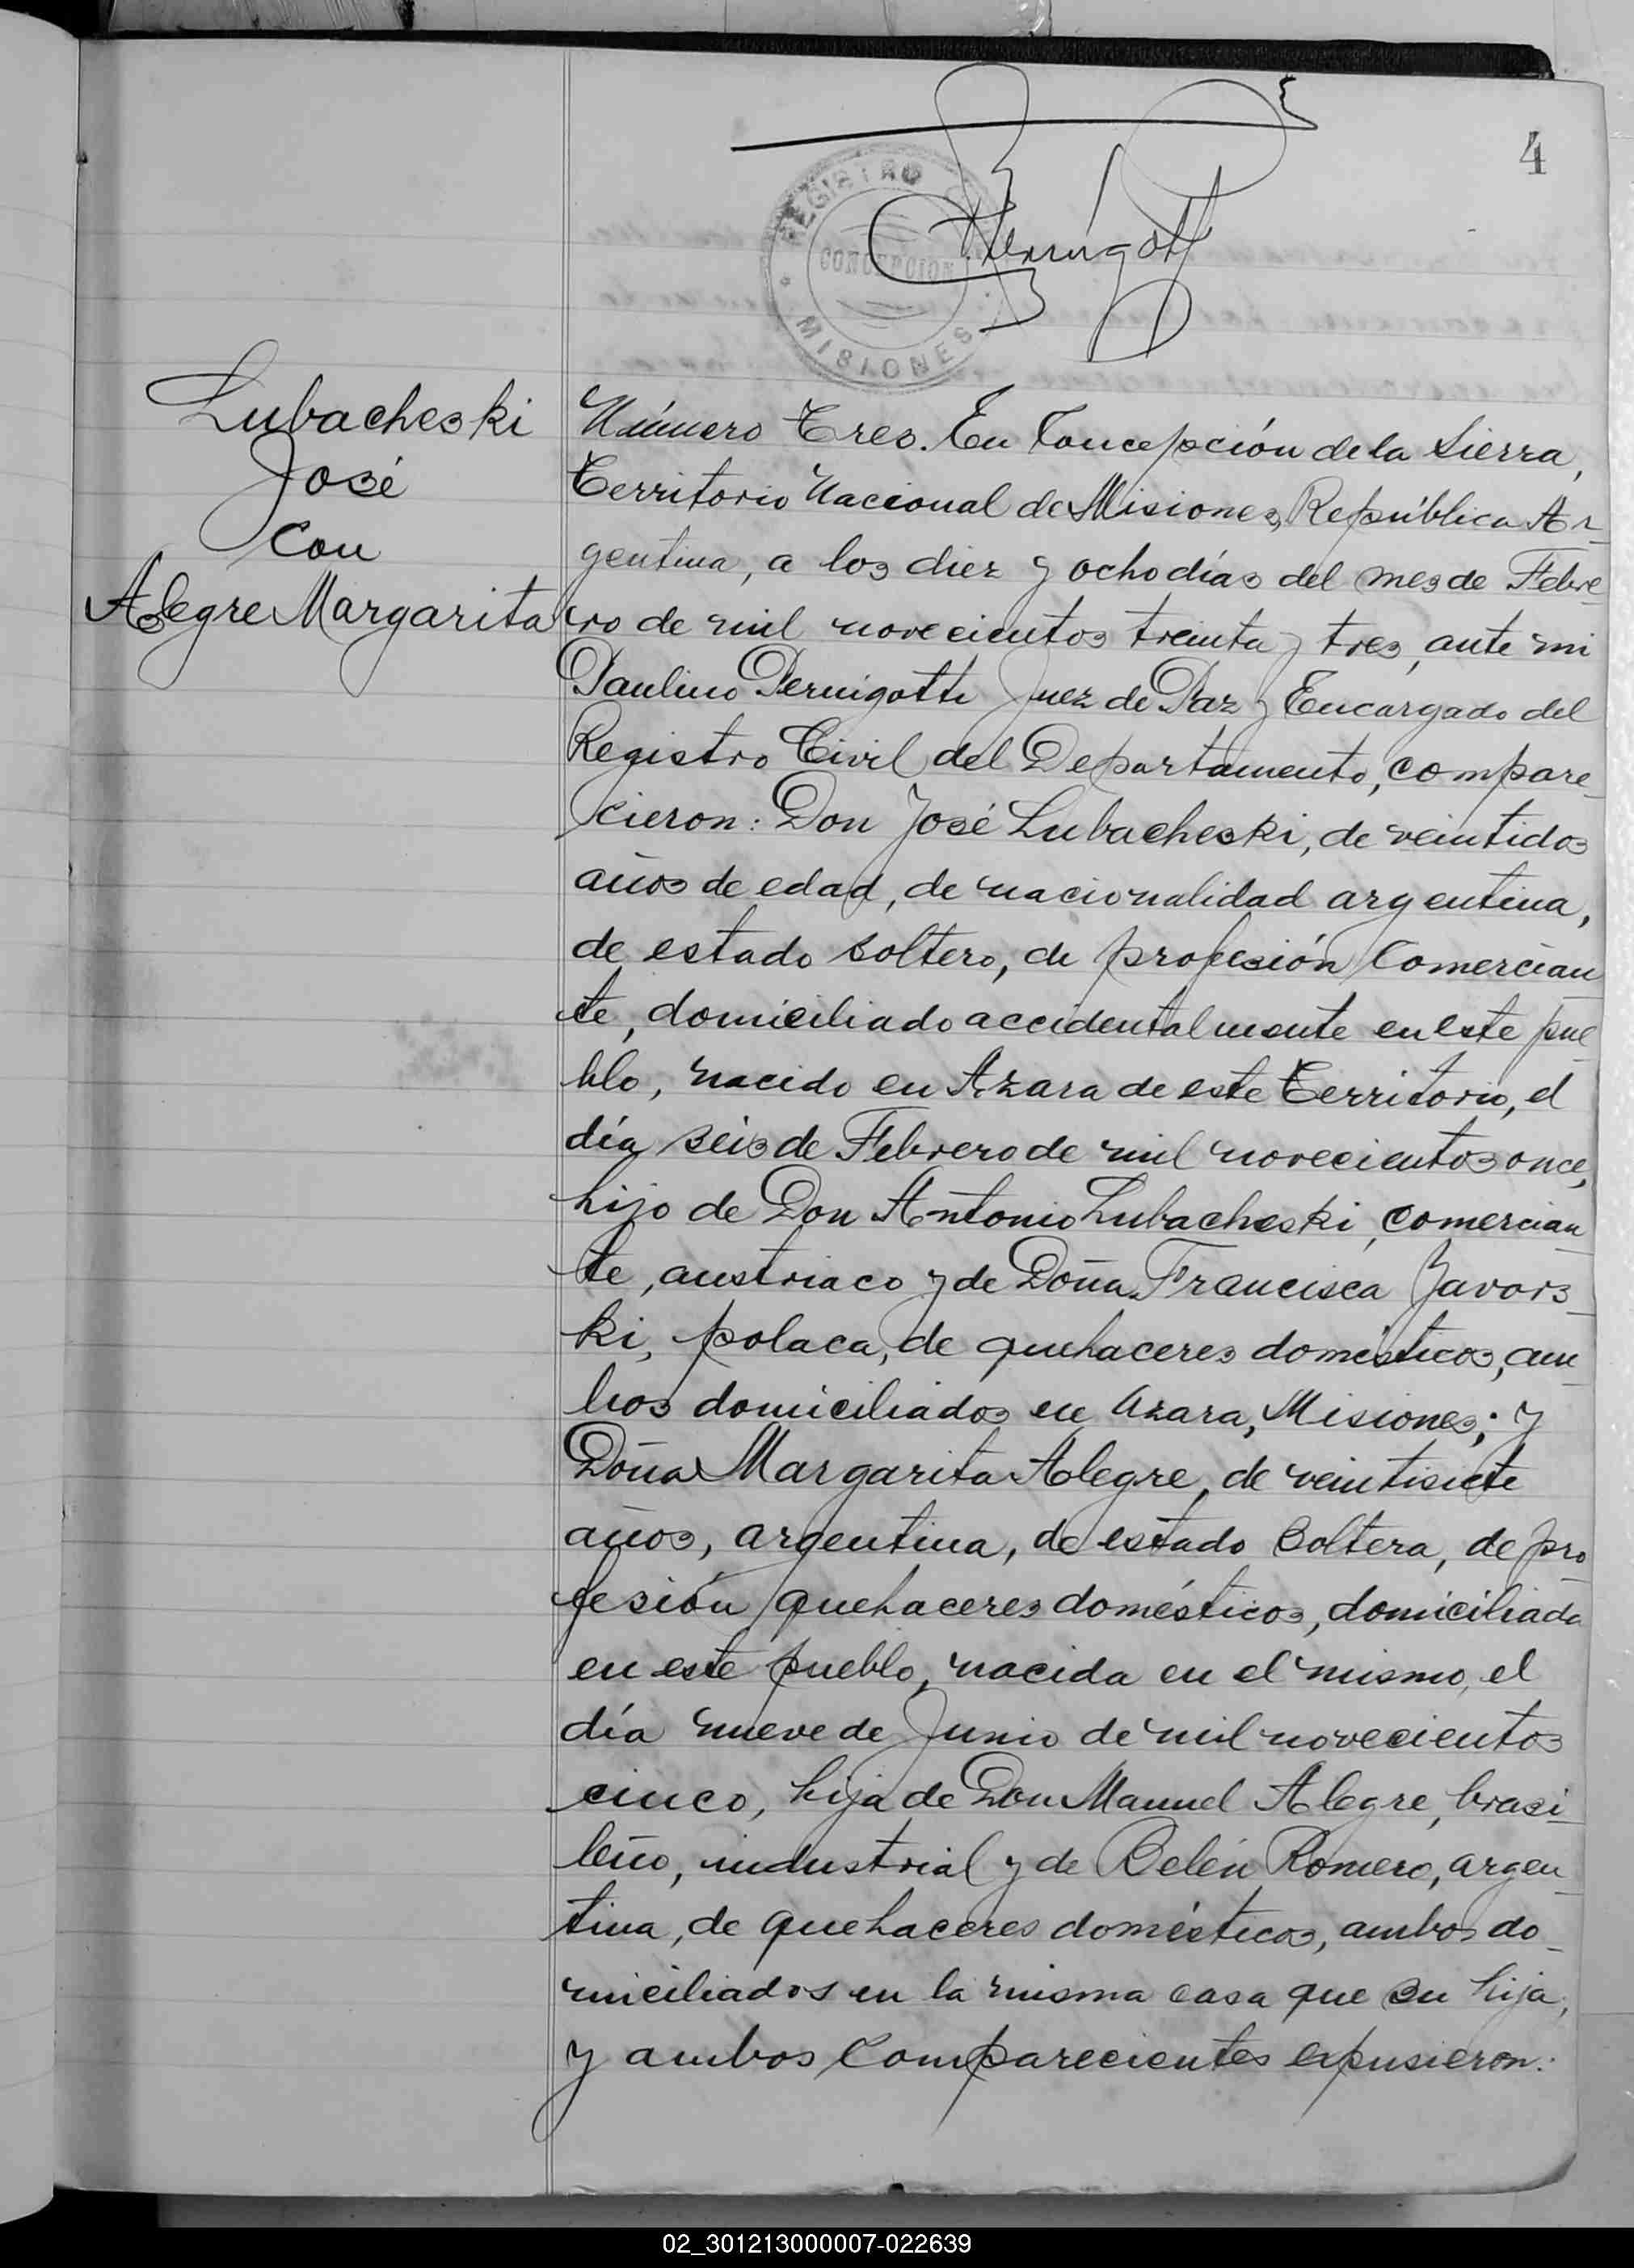 4
REGISTRO
CONCEPCION
MISIONES
Pernigotti
Lubacheski
José
Con
Alegre Margarita
Número Tres. En Concepción de la Sierra,
Territorio Nacional de Misiones, República Ar-
gentina, a los diez y ocho días del mes de Febre-
ro de mil novecientos treinta y tres, ante mi
Paulino Pernigotti Juez de Paz y Encargado del
Registro Civil del Departamento, compare-
cieron: Don José Lubacheski, de veintidos
años de edad, de nacionalidad argentina,
de estado soltero, de profesión Comercian-
te, domiciliado accidentalmente en este pue-
blo, nacido en Azara de este Territorio, el
día seis de Febrero de mil novecientos once,
hijo de Don Antonio Lubacheski, comercian-
te, austriaco y de Doña Francisca Javors-
ki, polaca, de quehaceres domésticos, am-
bos domiciliados en Azara, Misiones; y
Doña Margarita Alegre, de veintisiete
años, argentina, de estado soltera, de pro-
fesión quehaceres domésticos, domiciliada
en este pueblo, nacida en el mismo, el
día nueve de Junio de mil novecientos
cinco, hija de Don Manuel Alegre, brasi-
leño, industrial y de Belén Romero, argen-
tina, de quehaceres domésticos, ambos do-
miciliados en la misma casa que su hija;
y ambos Comparecientes expusieron:
02_301213000007-022639